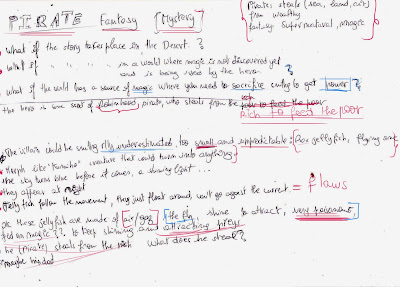 PIRATE Fantasy [Mystery]
Pirates: steals (sea, land, air)
from wealthy
fantasy: supernatural, magic
• What if the story takes place in the Desert?
• What if " " " in a world where magic is not discovered yet
and is being used by the hero.
• What if the world has a source of magic where you need to sacrifice smthg to get power?
the hero is some sort of robin hood, pirate, who steals from the
rich to feed the poor
The villain could be smthg underestimated, too small and unpredictable: [for jellyfish, flying
Morph like creature that could turn into anything]
the sky turns blue before it comes, a shining light...
they appear at night
Jelly fish follow the movement, they just float around, won't go against the current = flaws
these jellyfish are made of [air/gas] [the fly, shine to attract, very poisonous]
on magic?? to keep shining and attracting preys
he (pirate) steals from the rich what does he steal?
maybe his dad